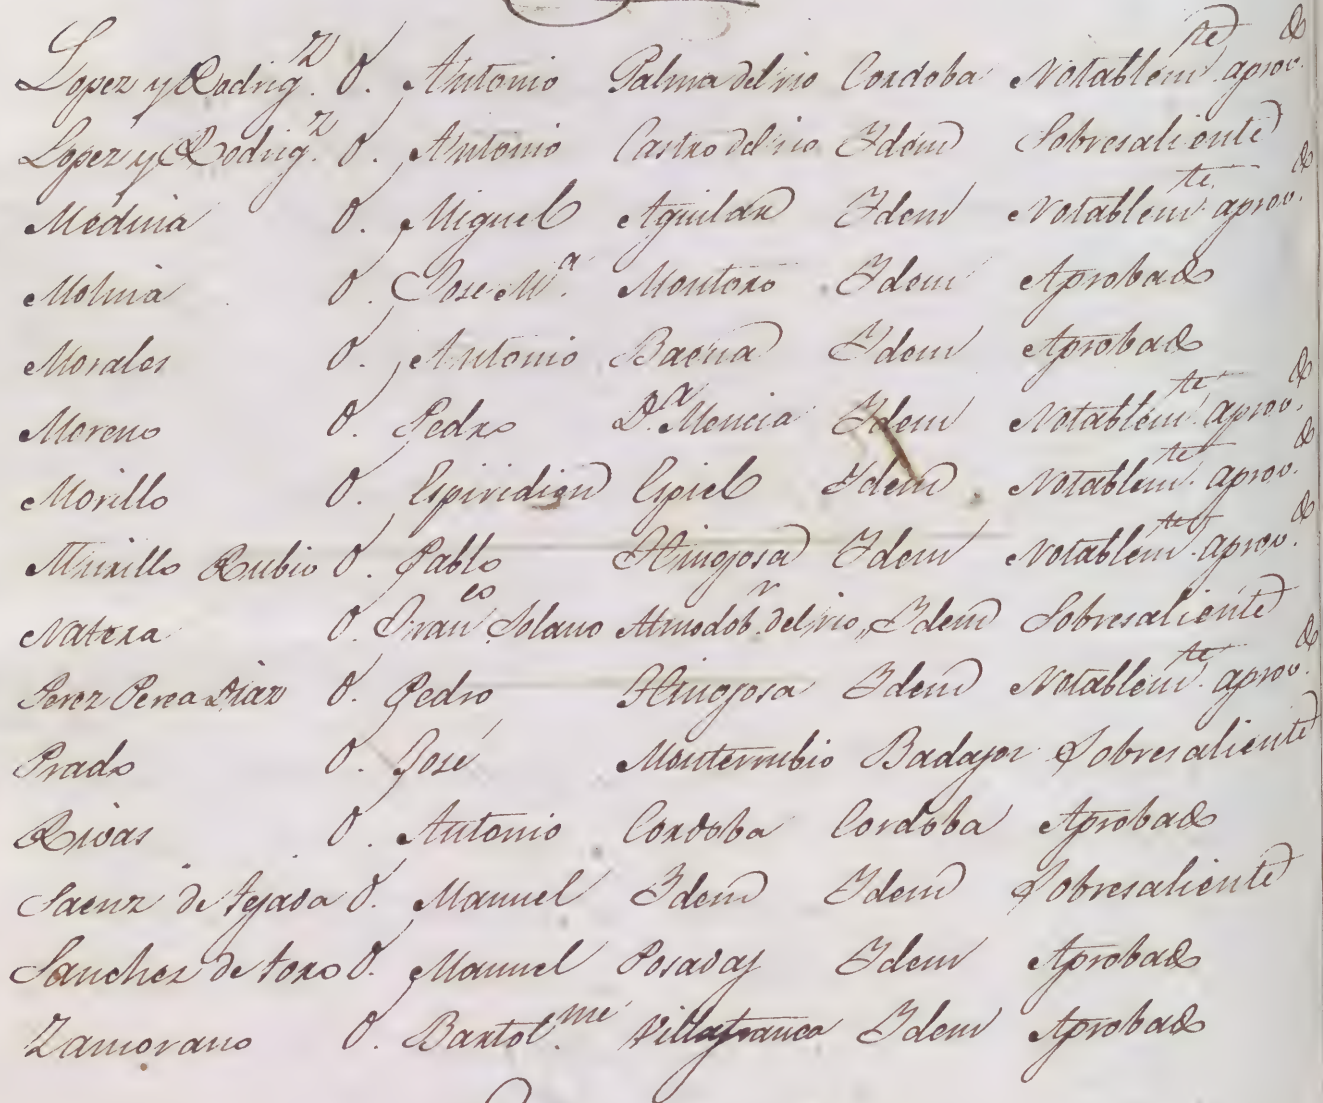 Lopez y Rodrig.z D. Antonio Palma del rio Cordoba Notablem.te aprov.do
Lopez y Rodrig.z D. Antonio Castro del rio Idem Sobresaliente
Medina D. Miguel Aguilar Idem Notablem.te aprov.do
Molina D. Jose M.a Montoro Idem Aprobado
Morales D. Antonio Baena Idem Aprobado
Moreno D. Pedro D.a Mencia Idem Notablem.te aprov.do
Morillo D. Espiridion Espiel Idem Notablem.te aprov.do
Murillo Rubio D. Pablo Hinojosa Idem Notablem.te aprov.do
Natera D. Fran.co Solano Almodob.r del rio, Idem Sobresaliente
Perez Perea Diaz D. Pedro Hinojosa Idem Notablem.te aprov.do
Prado D. José Monterrubio Badajoz Sobresaliente
Rivas D. Antonio Cordoba Cordoba Aprobado
Saenz de Tejada D. Manuel Idem Idem Sobresaliente
Sanchez de toro D. Manuel Posadas Idem Aprobado
Zamorano D. Bartol.me Villafranca Idem Aprobado